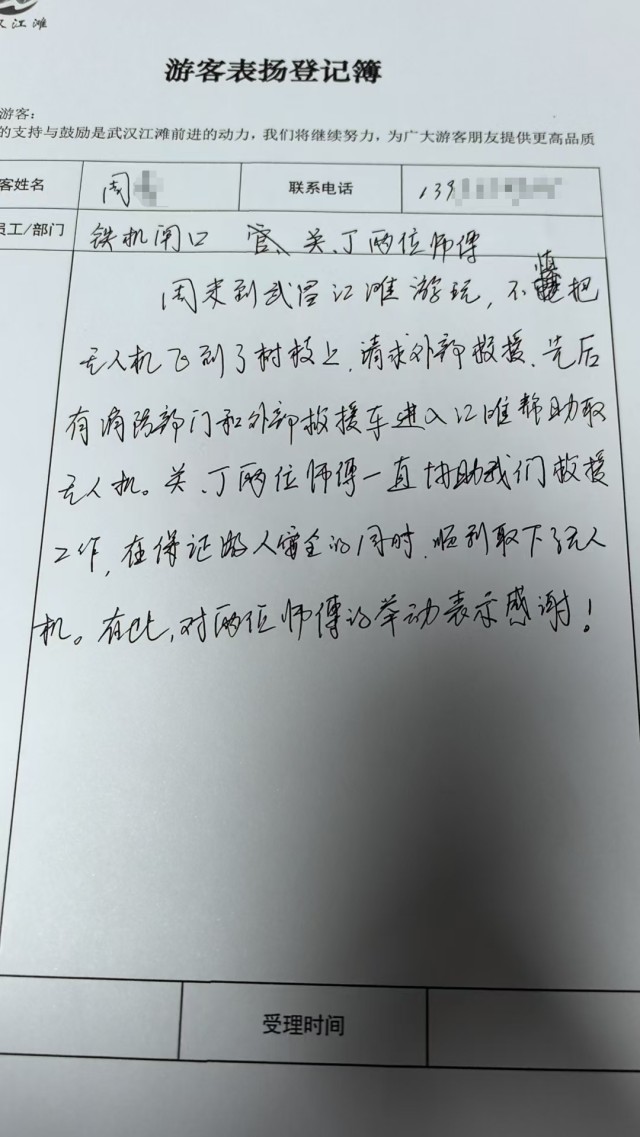 汉江滩
游客表扬登记簿
游客：
的支持与鼓励是武汉江滩前进的动力，我们将继续努力，为广大游客朋友提供更高品质
客姓名 周 联系电话 139
员工/部门 铁机闸口 关、丁两位师傅
周来到武昌江滩游玩，不慎把
无人机飞到了树枝上，请求外部救援、先后
有消防部门和外部救援车进入江滩帮助取
无人机。关、丁两位师傅一直协助我们救援
工作，在保证路人安全的同时，顺利取下了无人
机。在此，对两位师傅的举动表示感谢！
受理时间